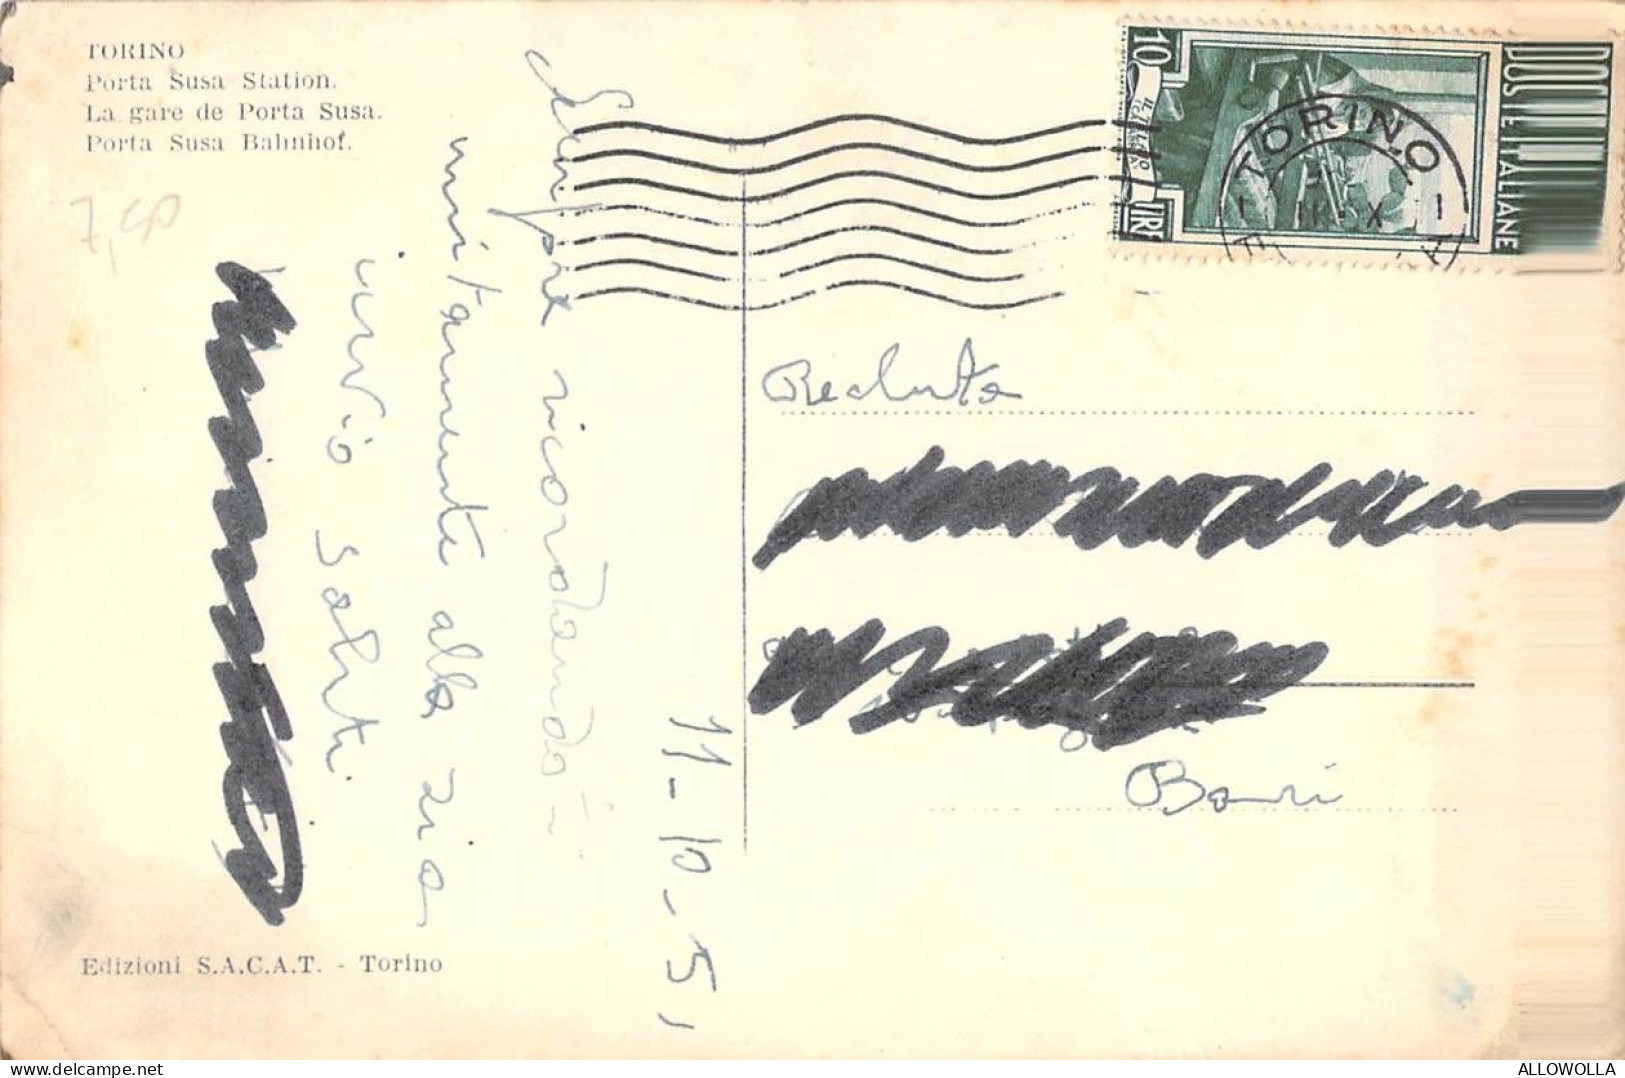 TORINO
Porta Susa Station.
La gare de Porta Susa.
Porta Susa Bahnhof.
7,50
10
LIRE
POSTE ITALIANE
TORINO
Sempre ricordando-
unitamente alla zia
invio saluti.
11-10-51
Recluta
Bari
Edizioni S.A.C.A.T. - Torino
delcampe.net
ALLOWOLLA